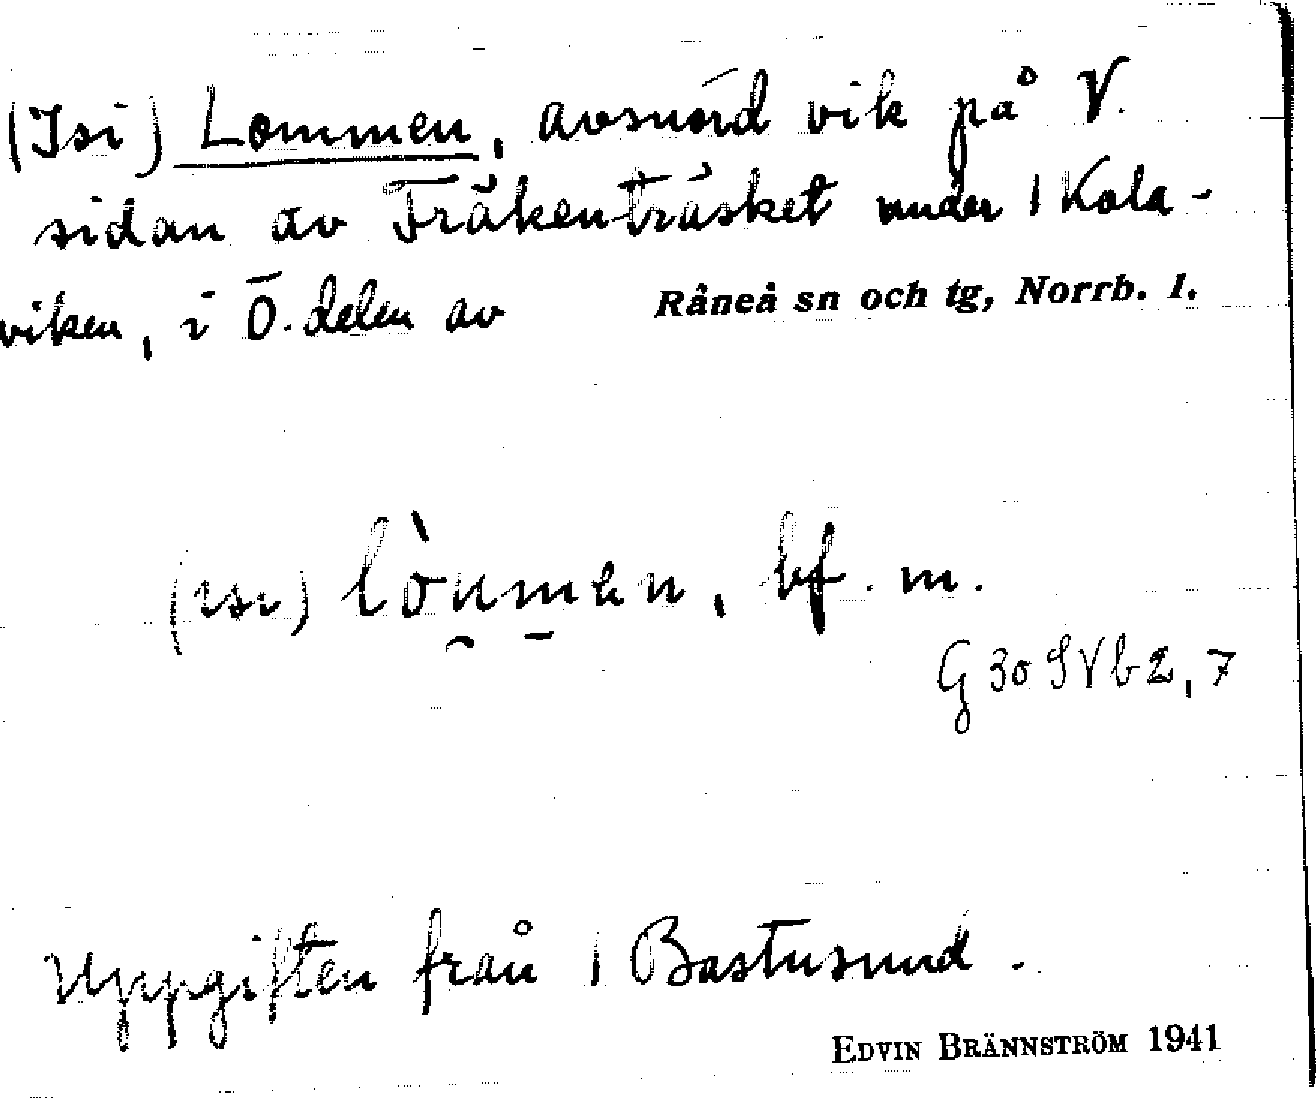 (Isi) Lommen, avsnörd vik på V.
sidan av Fräkenträsket under 1 Kola-
viken, i Ö. delen av Råneå sn och tg, Norrb. l.
(ısı) lòumen, bf. m.
G 30 SV b 2, 7
Uppgiften från 1 Bastusund.
EDVIN BRÄNNSTRÖM 1941